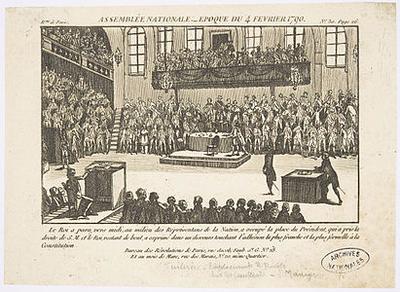 ASSEMBLÉE NATIONALE. EPOQUE DU 4 FEVRIER 1790.
Le Roi a paru, vers midi, au milieu des Représentans de la Nation, a occupé la place du Président, qui a pris la
droite de S. M. et le Roi, restant de bout, a exprimé dans un discours touchant l'adhésion la plus franche et la plus formelle à la
Constitution
Bureau des Révolutions de Paris, rue Jacob, Faub. St. G. No. 28.
Et au mois de Mars, rue des Marais, No. 20, même Quartier.
ARCHIVES
NATIONALES